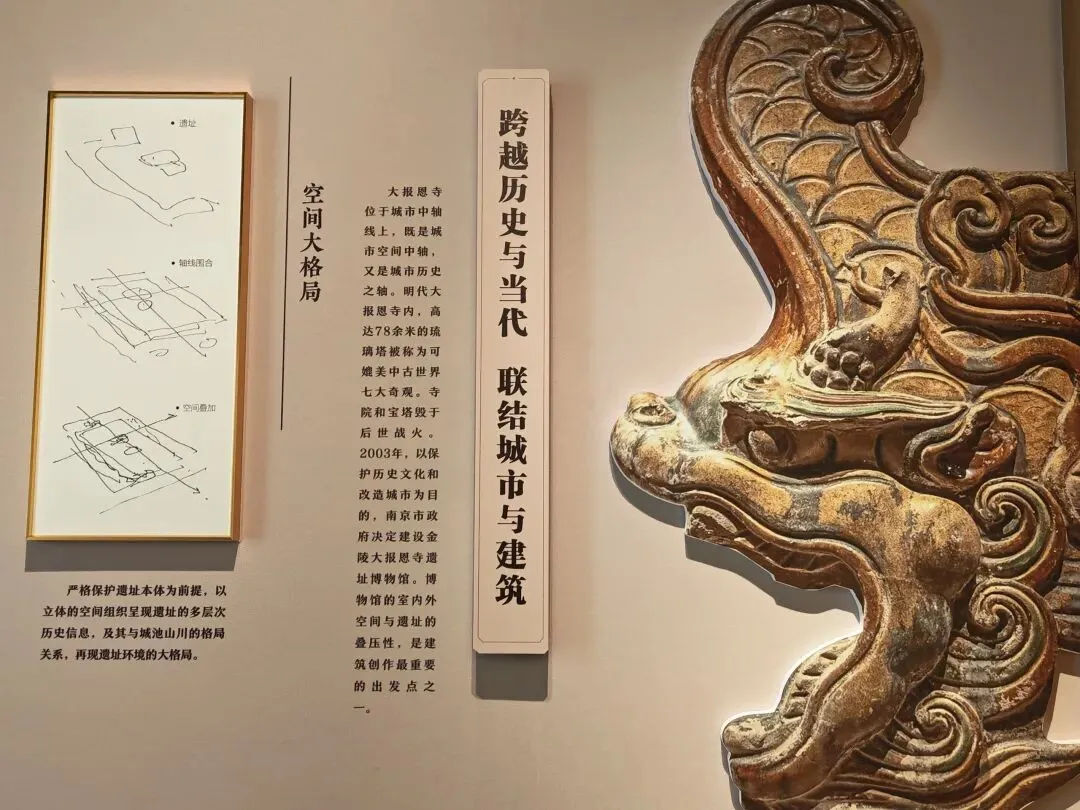 遗址
轴线围合
空间叠加
严格保护遗址本体为前提，以
立体的空间组织呈现遗址的多层次
历史信息，及其与城池山川的格局
关系，再现遗址环境的大格局。
空间大格局
大报恩寺
位于城市中轴
线上，既是城
市空间中轴，
又是城市历史
之轴。明代大
报恩寺内，高
达78余米的琉
璃塔被称为可
媲美中古世界
七大奇观。寺
院和宝塔毁于
后世战火。
2003年，以保
护历史文化和
改造城市为目
的，南京市政
府决定建设金
陵大报恩寺遗
址博物馆。博
物馆的室内外
空间与遗址的
叠压性，是建
筑创作最重要
的出发点之
一。
跨越历史与当代 联结城市与建筑